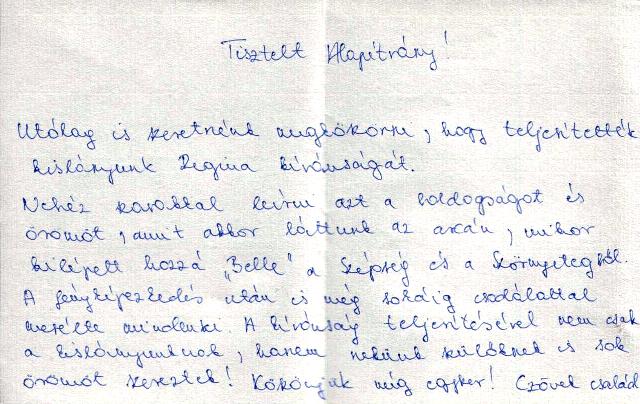 Tisztelt Alapítvány!
Utólag is szeretnénk megköközni, hogy teljesítették
kislányunk Regina kívánságát.
Nehéz szavakkal leírni azt a boldogságot és
örömöt, amit akkor láttunk az arcán, mikor
kilépett hozzá "Belle" a Szépség és a Szörnyetegből.
A fényképezkedés után is még sokáig csodálattal
mesélte mindenki. A kívánság teljesítésével nem csak
a kislányunknak, hanem nekünk szülőknek is sok
örömöt szereztek! Köszönjük még egyszer! Czövek család